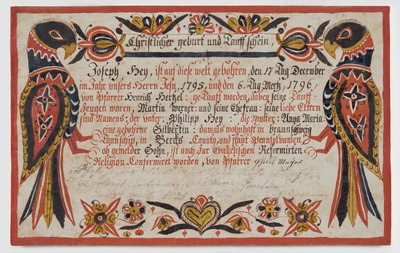 Christlicher geburt und Tauff schein,
Joseph Hey, ist auf diese welt gebohren, den 17 Tag December
im Jahr unsers Herren Jesu, 1795, und den 6. Tag Mertz, 1796,
von Pfarrer Henrich Hertzel: ge-Taufft worden, dabey seine Tauff
Zeugen waren, Martin Woener: und seine Ehefrau: seine liebe Eltern
sind Namens: der vater: Philipp Hey: die mutter: Anna Maria:
eine gebohrene Silbertin: damals wohnhafft in braunschweig
Taunschip, in Bercks County, und staat Pennsylvanien,
ob gemelder Sohn, ist auch zur Walhrischen Reformirten
Religion Konfermiret worden, von Pfarrer